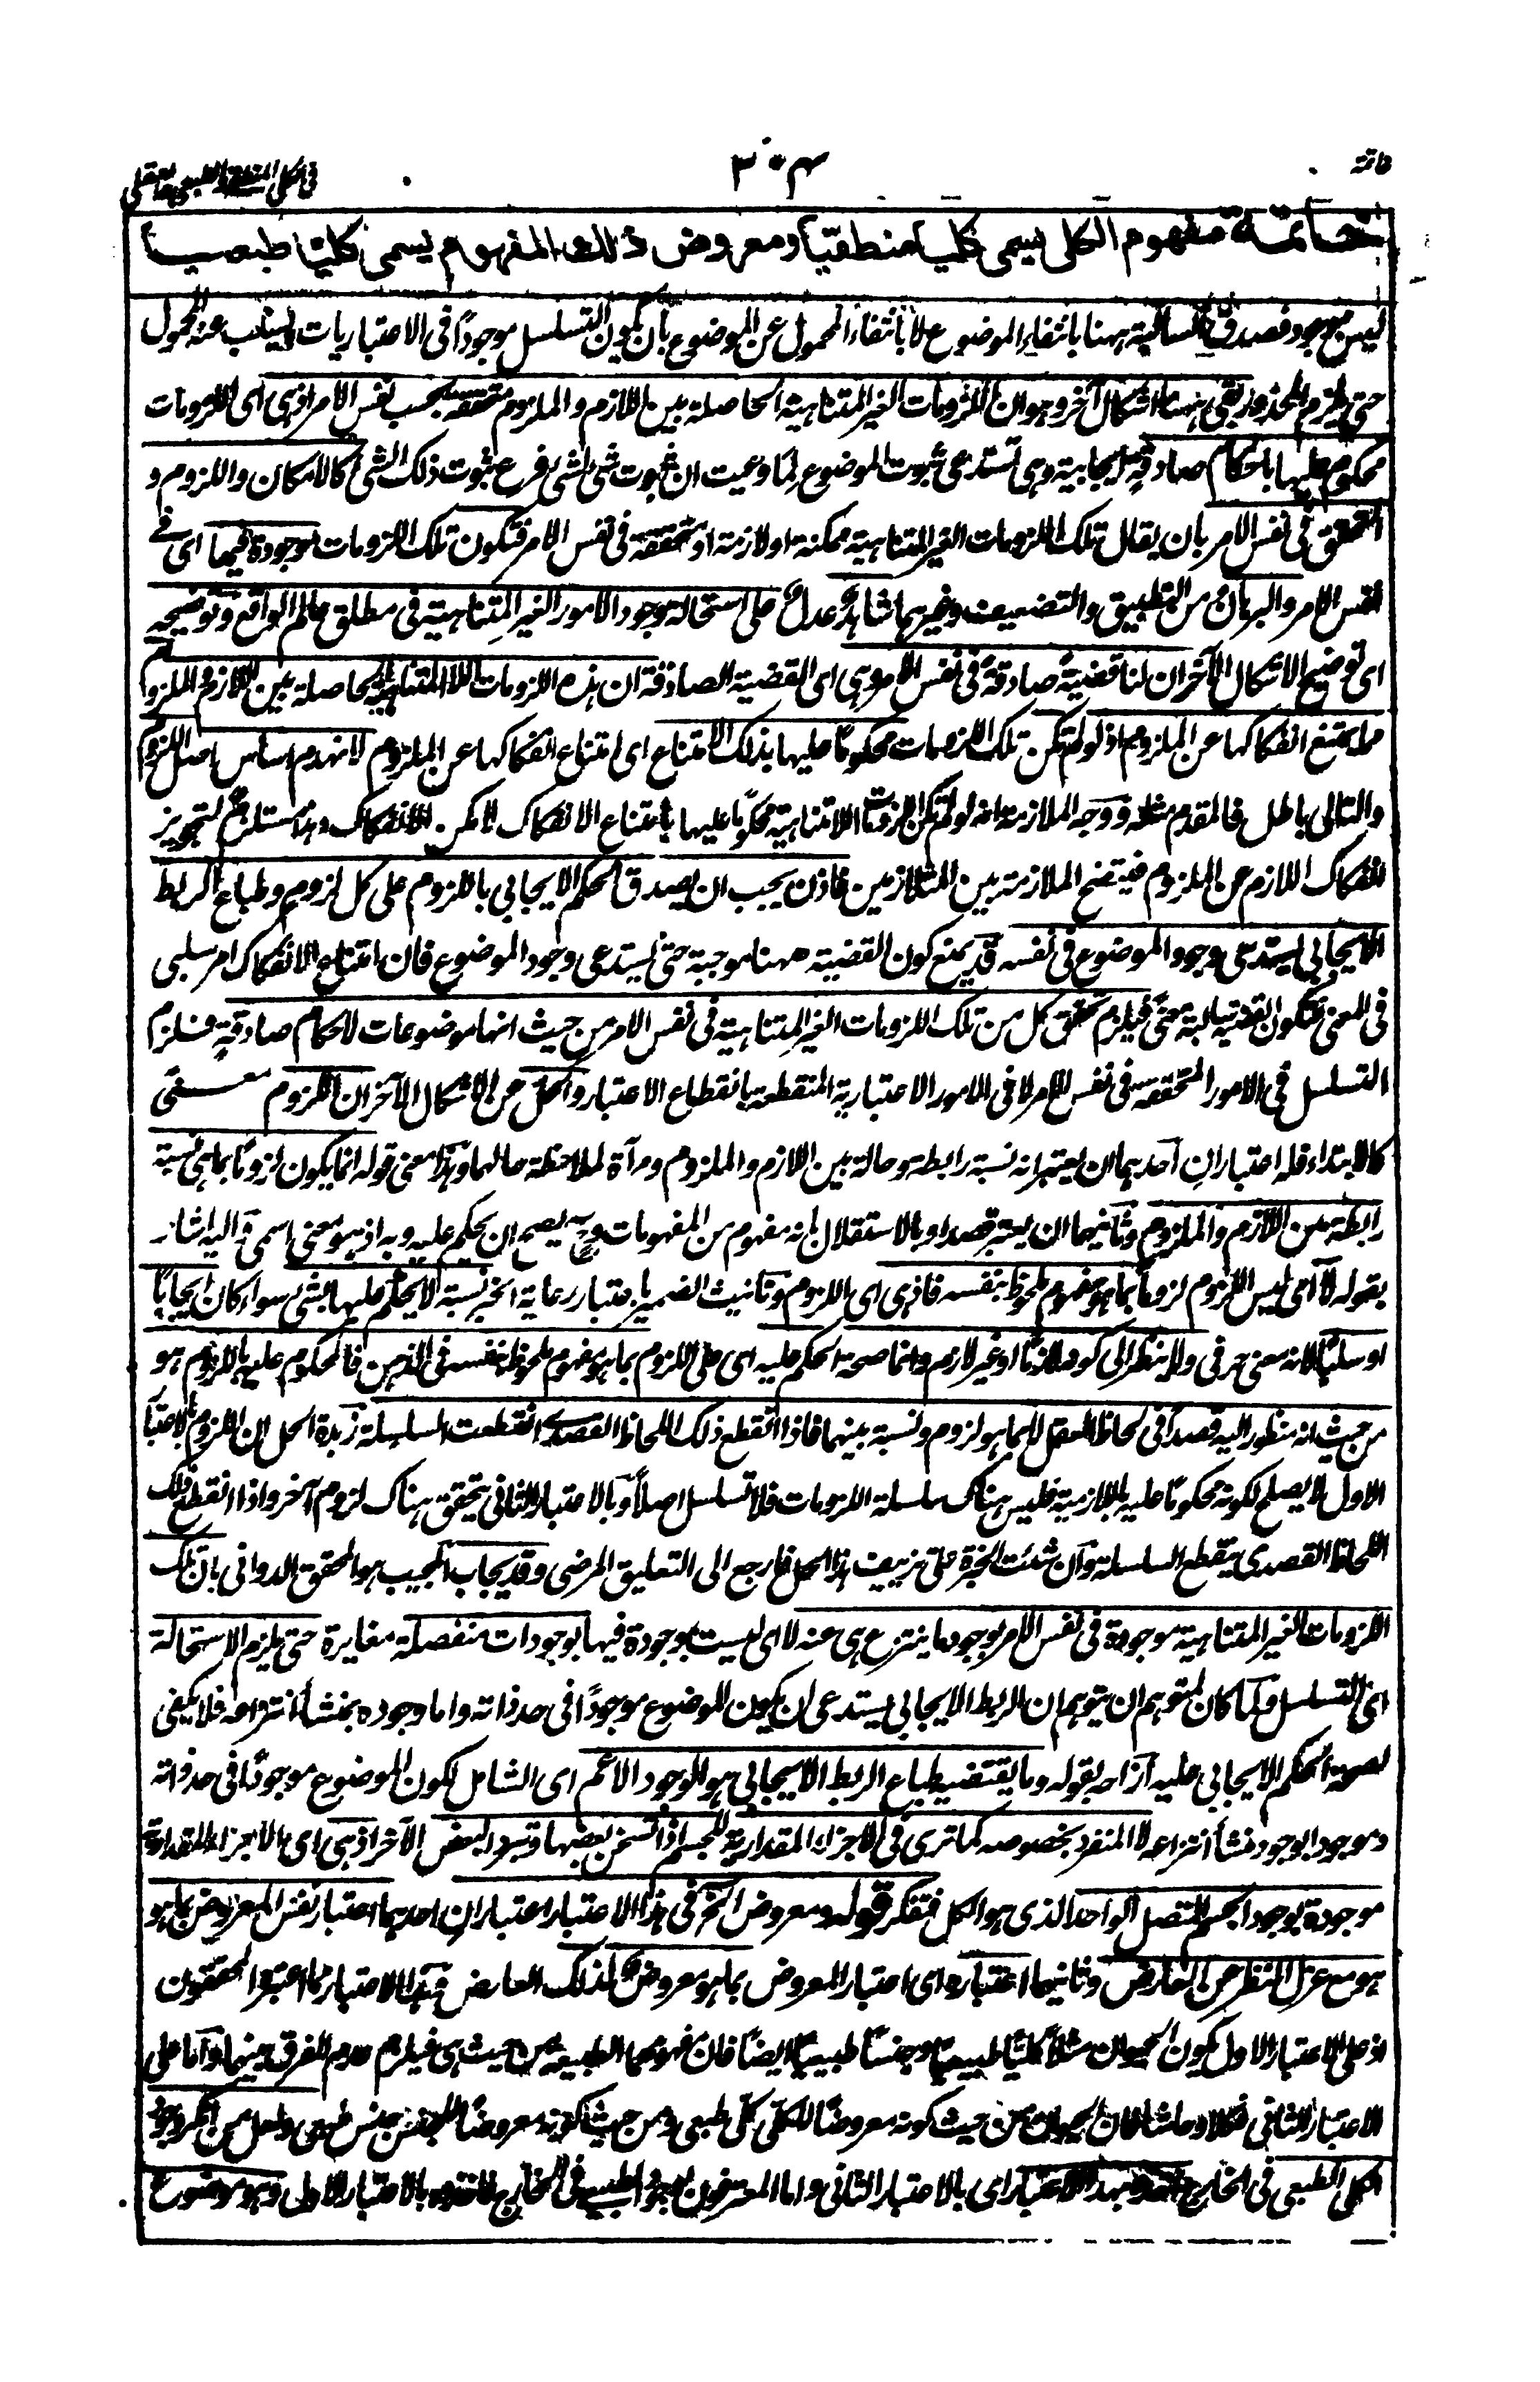 خاتمة
٣٠٤
في الكلي المنطقي والطبيعي والعقلي
خاتمة مفهوم الكلي يسمى كليا منطقيا ومعروض ذلك المفهوم يسمى كليا طبعيا
ليس بموجود فصدق السالبة ههنا بانتفاء الموضوع لا بانتفاء المحمول عن الموضوع بان يكون التسلسل موجودًا في الاعتباريات ليسلب عنه المحمول
حتى يلزم المحذور بقي ههنا اشكال آخر وهو ان اللزومات الغير المتناهية الحاصلة بين اللازم والملزوم متحققة بحسب نفس الامر اذ هي اي اللزومات
محكوم عليها باحكام صادقةٍ ايجابية وهي تستدعي ثبوت الموضوع لما وعيت ان ثبوت شئ لشئ فرع ثبوت ذلك الشئ كالامكان واللزوم و
التحقق في نفس الامر بان يقال تلك اللزومات الغير المتناهية ممكنة او لازمة او متحققة في نفس الامر فتكون تلك اللزومات موجودة فيها اي في
نفس الامر والبرهان من التطبيق والتضعيف وغيرهما شاهدٌ عدلٌ على استحالة وجود الامور الغير المتناهية في مطلق عالم الواقع وتوضيحه
اي توضيح الاشكال الآخر ان لنا قضيةً صادقةً في نفس الامر وهي اي القضية الصادقة ان هذه اللزومات اللا متناهية الحاصلة بين اللازم والملزوم
مما يمتنع انفكاكها عن الملزوم اذ لو لم تكن تلك اللزومات محكومًا عليها بذلك الامتناع اي امتناع انفكاكها عن الملزوم لانهدم اساس اصل اللزوم
والتالي باطل فالمقدم مثله ووجه الملازمة انه لو لم تكن اللزومات اللامتناهية محكومًا عليها بامتناع الانفكاك لامكن الانفكاك وهذا مستلزمٌ لتجويز
انفكاك اللازم عن الملزوم فيتفسخ الملازمة بين المتلازمين فاذن يجب ان يصدق الحكم الايجابي باللزوم على كل لزوم وطباع الربط
الايجابي يستدعي وجود الموضوع في نفسه قد يمنع كون القضية ههنا موجبة حتى يستدعي وجود الموضوع فان امتناع الانفكاك امر سلبي
في المعنى فتكون القضية سالبة معنىً فيلزم تحقق كل من تلك اللزومات الغير المتناهية في نفس الامر من حيث انها موضوعات لاحكام صادقةٍ فلزم
التسلسل في الامور المتحققة في نفس الامر لا في الامور الاعتبارية المنقطعة بانقطاع الاعتبار والحل عن الاشكال الآخر ان اللزوم معنىً
كالابتداء فله اعتباران احدهما ان يعتبر انه نسبة رابطة وحالة بين اللازم والملزوم ومرآة لملاحظة حالهما وهذا معنى قوله انما يكون لزومًا بما هي نسبة
رابطة من اللازم والملزوم وثانيهما ان يعتبر قصدا وبالاستقلال انه مفهوم من المفهومات وبه يصح ان يحكم عليه وبه اذ هو معنى اسمي واليه اشار
بقوله لا اي ليس اللزوم لزومًا بما هو مفهوم ملحوظ بنفسه فاذ هي اي اللزوم وتانيث الضمير باعتبار رعاية الخبر نسبة لا يحكم عليها بشئ سواء كان ايجابًا
او سلبًا لانه معنى حرفي ولا ينظر الى كونه لازمًا او غير لازم وانما صحة الحكم عليه اي على اللزوم بما هو مفهوم ملحوظ بنفسه في الذهن فالمحكوم عليه باللزوم هو
من حيث انه منظور اليه قصدًا في لحاظ العقل لا بما هو لزوم ونسبة بينهما فاذا انقطع ذلك اللحاظ القصدي انقطعت السلسلة زبدة الحل ان اللزوم بالاعتبار
الاول لا يصلح لكونه محكومًا عليه باللازمية فليس هناك سلسلة اللزومات فلا تسلسل اصلًا وبالاعتبار الثاني يتحقق هناك لزوم آخر واذا انقطع ذلك
اللحاظ القصدي ينقطع السلسلة وان شئت الخبرة على تزييف هذا الحل فارجع الى التعليق المرضي وقد يجاب المجيب هو المحقق الدواني بان تلك
اللزومات الغير المتناهية موجودة في نفس الامر بوجود ما ينتزع هي عنه لا اي ليست بموجودة فيها بوجودات منفصلة مغايرة حتى يلزم الاستحالة
اي التسلسل ولما كان لمتوهم ان يتوهم ان الربط الايجابي يستدعي ان يكون الموضوع موجودًا في حد ذاته واما وجوده بمنشأ انتزاعه فلا يكفي
لصحة الحكم الايجابي عليه ازاحه بقوله وما يقتضيه طباع الربط الايجابي هو الوجود الاعم اي الشامل لكون الموضوع موجودًا في حد ذاته
وموجودا بوجود منشأ انتزاعه لا المنفرد بخصوصه كما ترى في الاجزاء المقدارية للجسم اذا تسخن بعضها وتبرد البعض الآخر اذ هي اي الاجزاء المقدارية
موجودة بوجود الجسم المتصل الواحد الذي هو الكل فتفكر قوله ومعروض الخ في هذا الاعتبار اعتباران احدهما اعتبار نفس المعروض بما هو
هو مع عزل النظر عن العارض وثانيهما اعتباره اي اعتبار المعروض بما هو معروضٌ لذلك العارض وهذا الاعتبار مما اعتبره المحققون
اذ على الاعتبار الاول يكون الحيوان مثلًا كليًا طبيعيًا وجنسًا طبيعيًا ايضًا فان مفهومهما الطبيعة من حيث هي فيلزم عدم الفرق بينهما واما على
الاعتبار الثاني فكلا وحاشا فان الحيوان من حيث كونه معروضًا للكلي كلي طبعي ومن حيث كونه معروضًا للجنس جنس طبعي ولعل من انكر وجود
الكلي الطبعي في الخارج بهذا الاعتبار اي بالاعتبار الثاني واما المعترفون بوجود الطبيعي في الخارج بالاعتبار الاول وهو موضوع